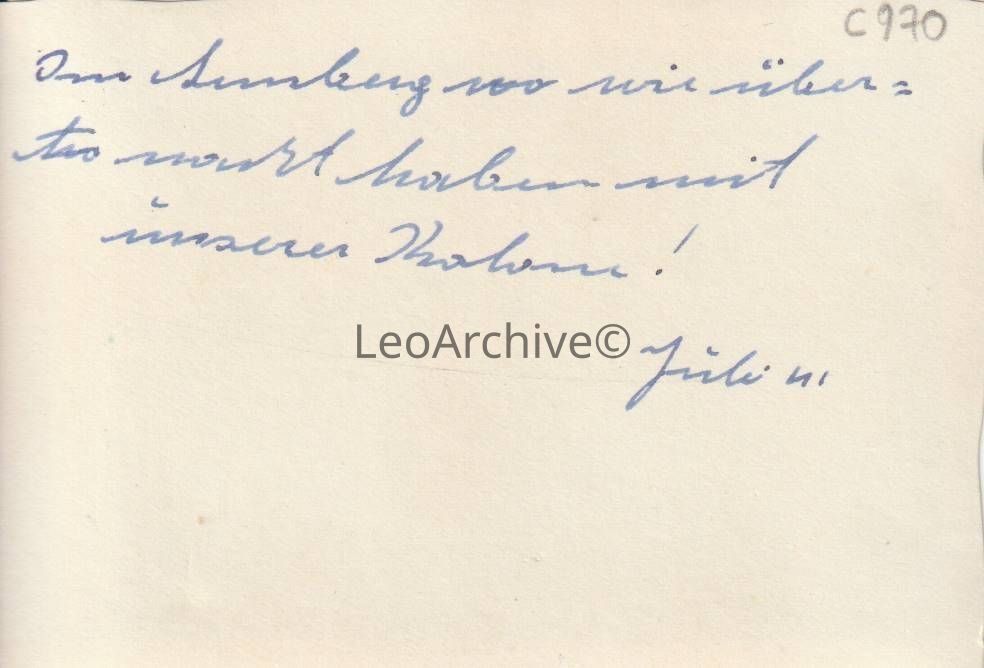 C 970
wo wir über=
nacht haben mit
unserer Kolone !
LeoArchive©
Juli 41